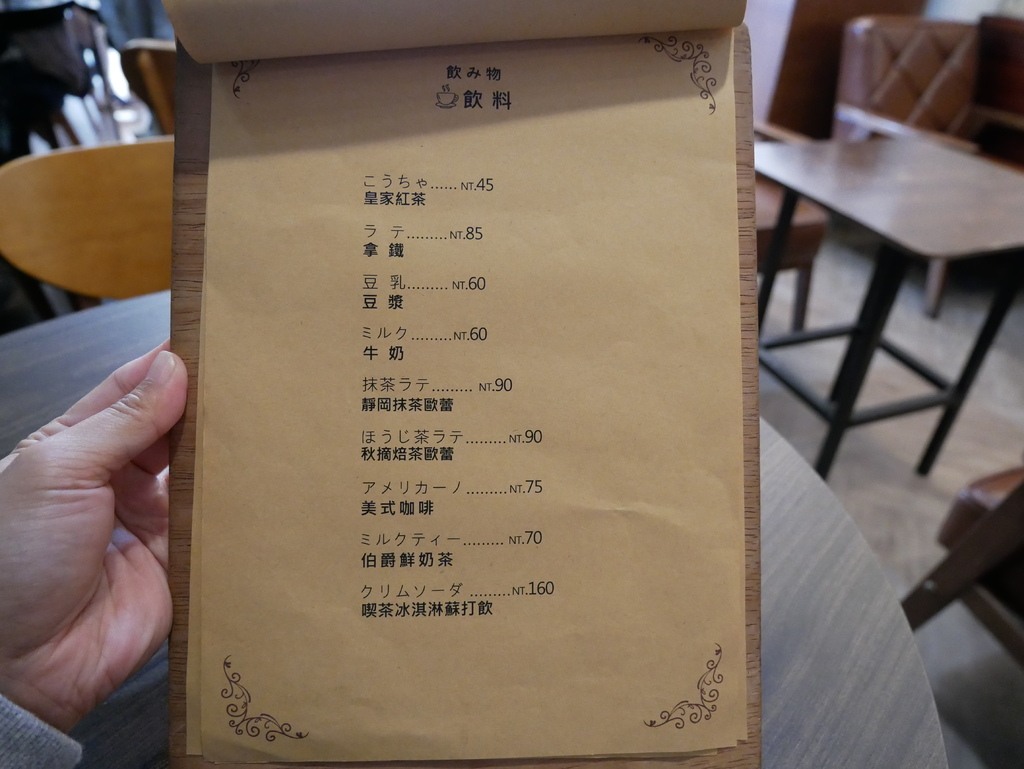 飲み物
飲料
こうちゃ...... NT.45
皇家紅茶
ラテ.........NT.85
拿鐵
豆乳.........NT.60
豆漿
ミルク.........NT.60
牛奶
抹茶ラテ......... NT.90
靜岡抹茶歐蕾
ほうじ茶ラテ.........NT.90
秋摘焙茶歐蕾
アメリカーノ.........NT.75
美式咖啡
ミルクティー......... NT.70
伯爵鮮奶茶
クリムソーダ .........NT.160
喫茶冰淇淋蘇打飲